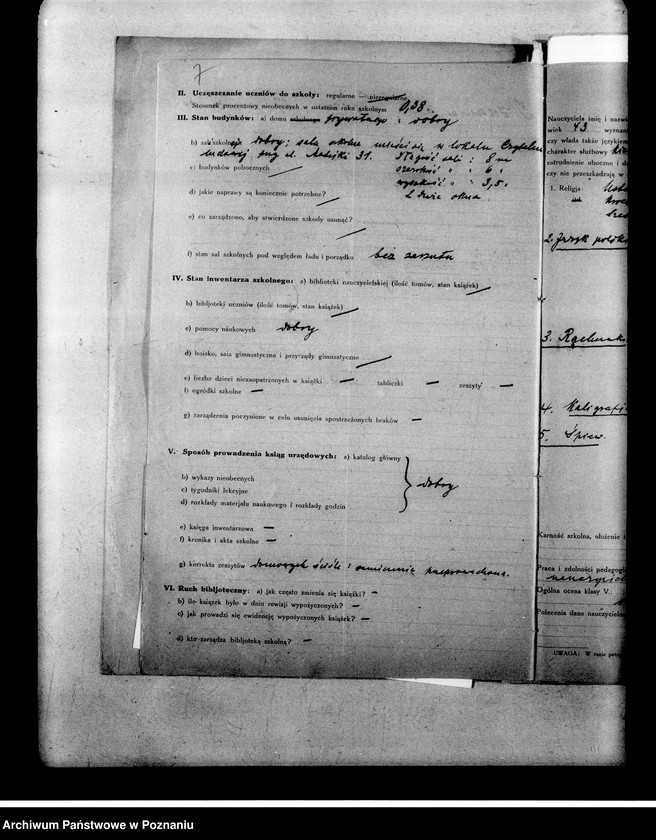 7
II. Uczęszczanie uczniów do szkoły: regularne — nieregularne
Stosunek procentowy nieobecnych w ostatnim roku szkolnym 0,38
III. Stan budynków: a) domu szkolnego prywatnego : dobry
b) sal szkolnych dobry; sala szkolna mieści się w lokalu Czytelni
ludowej przy ul. Matejki 31. Długość sali : 8 m
c) budynków pobocznych — szerokość " : 6 "
wysokość " " 3,5 "
d) jakie naprawy są koniecznie potrzebne? — 2 duże okna
e) co zarządzono, aby stwierdzone szkody usunąć? —
f) stan sal szkolnych pod względem ładu i porządku bez zarzutu
IV. Stan inwentarza szkolnego: a) biblioteki nauczycielskiej (ilość tomów, stan książek) —
b) bibljoteki uczniów (ilość tomów, stan książek) —
c) pomocy naukowych dobry
d) boisko, sala gimnastyczna i przyrządy gimnastyczne —
e) liczba dzieci niezaopatrzonych w książki — tabliczki — zeszyty —
f) ogródki szkolne —
g) zarządzenia poczynione w celu usunięcia spostrzeżonych braków —
V. Sposób prowadzenia ksiąg urzędowych: a) katalog główny
b) wykazy nieobecnych
c) tygodniki lekcyjne dobry
d) rozkłady materjału naukowego i rozkłady godzin
e) księga inwentarzowa —
f) kronika i akta szkolne —
g) korekta zeszytów domowych ściśle i sumiennie przeprowadzona.
VI. Ruch bibljoteczny: a) jak często zmienia się książki? —
b) ile książek było w dniu rewizji wypożyczonych? —
c) jak prowadzi się ewidencję wypożyczonych książek? —
d) kto zarządza bibljoteką szkolną? —
Nauczyciela imię i nazwi
wiek 43 wyznani
czy włada także językiem
charakter służbowy
zatrudnienie uboczne i do
czy nie przeszkadzają w
1. Religja
2. Język polski
3. Rachunki
4. Kaligrafia
5. Śpiew.
Karność szkolna, ułożenie i
Praca i zdolności pedagogi
Ogólna ocena klasy V.
Polecenia dane nauczycielow
UWAGA: W razie potrz
Archiwum Państwowe w Poznaniu